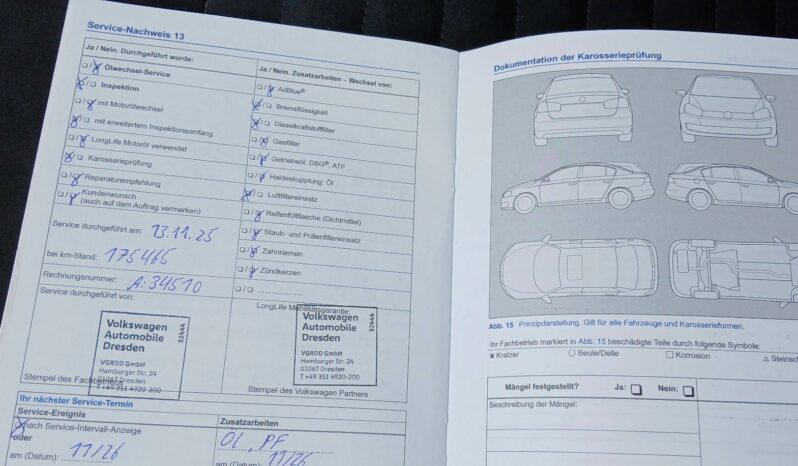 Service-Nachweis 13
Ja / Nein. Durchgeführt wurde:
Ölwechsel-Service
Inspektion
mit Motorölwechsel
mit erweitertem Inspektionsumfang
LongLife Motoröl verwendet
Karosserieprüfung
Reparaturempfehlung
Kundenwunsch
(auch auf dem Auftrag vermerken)
Ja / Nein. Zusatzarbeiten – Wechsel von:
AdBlue®
Bremsflüssigkeit
Dieselkraftstofffilter
Gasfilter
Getriebeöl: DSG®, ATF
Haldexkupplung: Öl
Luftfiltereinsatz
Reifenfüllflasche (Dichtmittel)
Staub- und Pollenfiltereinsatz
Zahnriemen
Zündkerzen
Service durchgeführt am: 13.11.25
bei km-Stand: 175465
Rechnungsnummer: A:34510
Service durchgeführt von:
Volkswagen
Automobile
Dresden
VGRDD GmbH
Hamburger Str. 24
01067 Dresden
T +49 351 4920-200
32444
Stempel des Fachbetriebes
LongLife Mobilitätsgarantie:
Volkswagen
Automobile
Dresden
VGRDD GmbH
Hamburger Str. 24
01067 Dresden
T +49 351 4920-200
32444
Stempel des Volkswagen Partners
Ihr nächster Service-Termin
Service-Ereignis
nach Service-Intervall-Anzeige
oder
am (Datum): 11/26
Zusatzarbeiten
ÖL, PF
am (Datum): 11/26
Dokumentation der Karosserieprüfung
Abb. 15 Prinzipdarstellung. Gilt für alle Fahrzeuge und Karosserieformen.
Ihr Fachbetrieb markiert in Abb. 15 beschädigte Teile durch folgende Symbole:
Kratzer
Beule/Delle
Korrosion
Steinsch
Mängel festgestellt? Ja: Nein:
Beschreibung der Mängel: